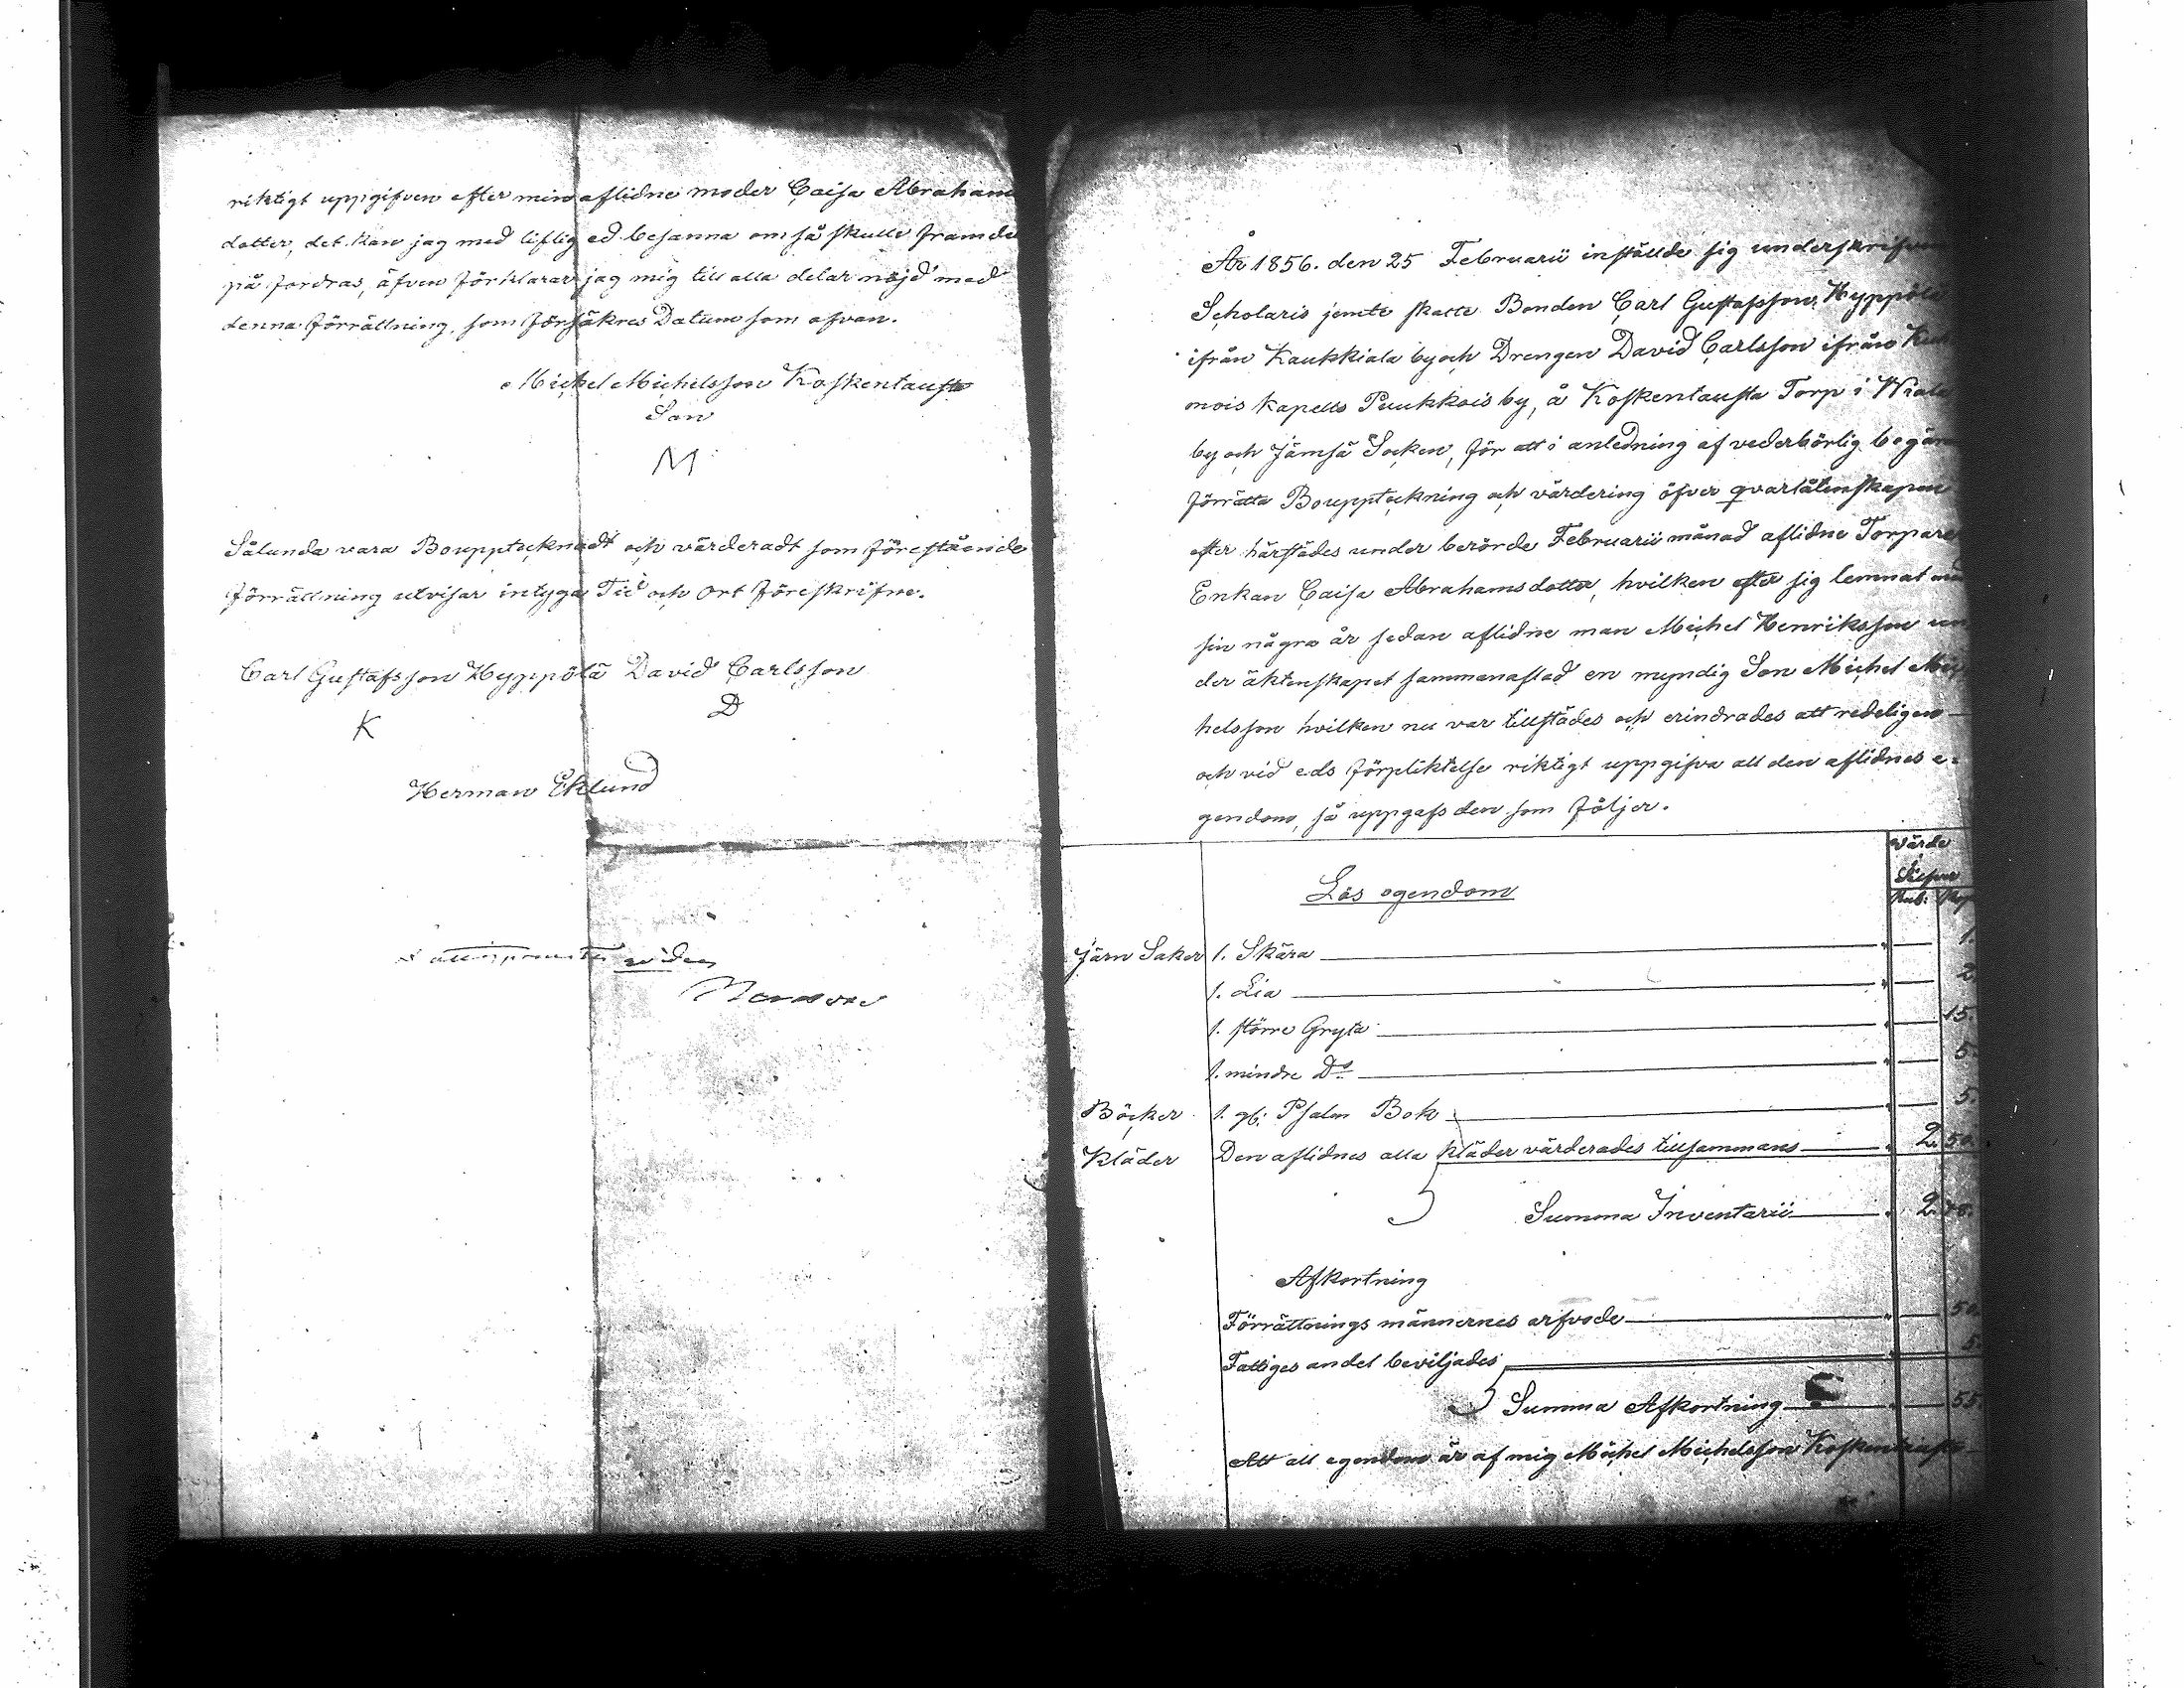 riktigt uppgifven efter min aflidne moder Caisa Abrahams
dotter, det kan jag med liflig ed besanna om så skulle framde
på fordras, äfven förklarar jag mig till alla delar nöjd med
denna förrättning, som försäkres Datum som ofvan.
Michel Michelsson Koskentausta
Son
M
Sålunda vara Boupptecknadt och värderadt som förestående
förrättning utvisar intyga Tid och Ort föreskrifne.
Carl Gustafsson Hyppölä David Carlsson
K D
Herman Eklund
År 1856. den 25 Februarii inställde sig underskrifven
Scholaris jemte skatte Bonden Carl Gustafsson Hyppölä
ifrån Kaukkiala by och Drengen David Carlsson ifrån Kuh
mois kapells Puukkois by, å Koskentausta Torp i Wiala
by och Jämsä Socken, för att i anledning af vederbörlig begäran
förrätta Bouppteckning och värdering öfver qvarlåtenskapen
efter härstädes under berörde Februarii månad aflidne Torpare
Enkan Caisa Abrahamsdotter, hvilken efter sig lemnat med
sin några år sedan aflidne man Michel Henriksson un
der äktenskapet sammanaflad en myndig Son Michel Mic
helsson hvilken nu var tillstädes och erindrades att redeligen
och vid eds förpliktelse riktigt uppgifva all den aflidnes e=
gendom, så uppgafs den som följer.
värde
i
Silfver
Rub. Kop
Lös egendom
Järn Saker 1. Skära 1.
1. Lia 2.
1. större Gryta 15.
1. mindre Do 5.
Böcker 1. gl: Psalm Bok 5.
Kläder Den aflidnes alla kläder värderades tillsammans 2. 50.
Summa Inventarii 2. 78.
Afkortning
Förrättnings männernes arfvode 50.
Fattiges andel beviljades 5.
Summa Afkortning 55.
Att all egendom är af mig Michel Michelsson Koskentausta